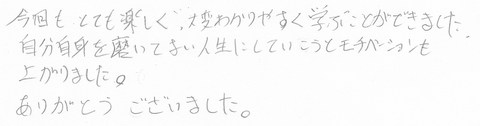 今回も とても楽しく、大変わかりやすく学ぶことができました.
自分自身を磨いてよい人生にしていこうとモチベーションも
上がりました。
ありがとう ございました。